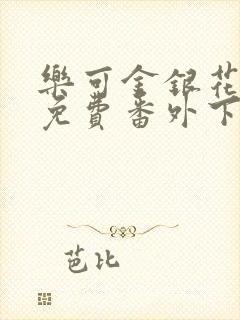 樂可金銀花
免費番外下
芭比